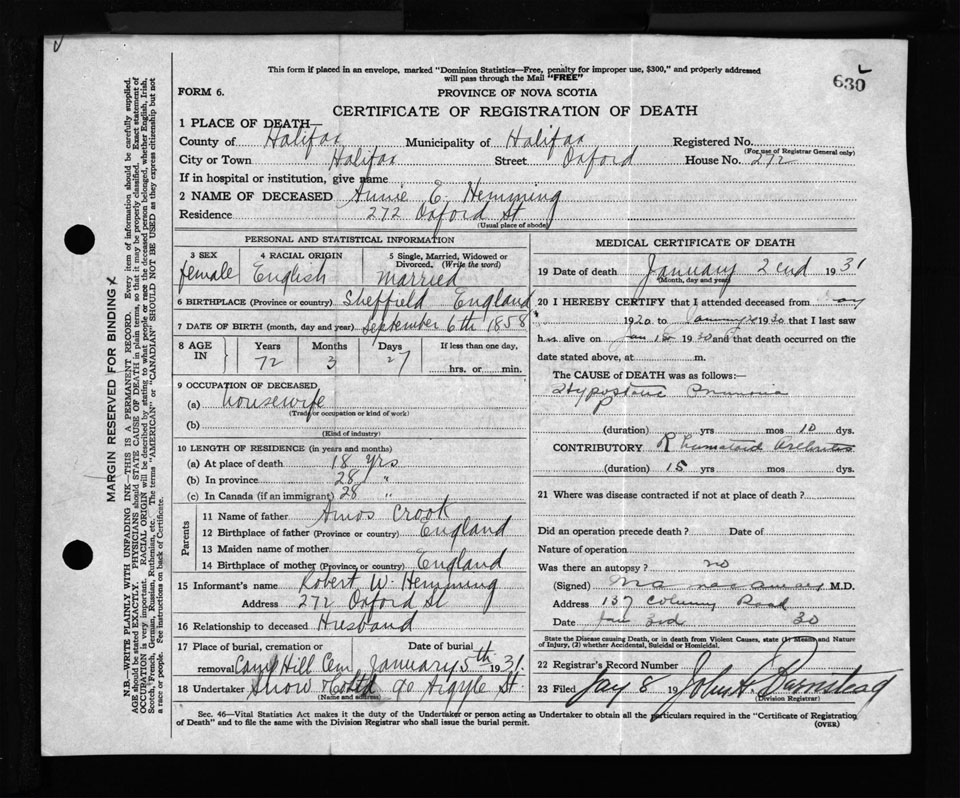 This form if placed in an envelope, marked "Dominion Statistics—Free, penalty for improper use, $300," and properly addressed
will pass through the Mail "FREE"
630
FORM 6.
PROVINCE OF NOVA SCOTIA
CERTIFICATE OF REGISTRATION OF DEATH
1 PLACE OF DEATH—
County of Halifax Municipality of Halifax Registered No.
(For use of Registrar General only)
City or Town Halifax Street Oxford House No. 272
If in hospital or institution, give name
2 NAME OF DECEASED Annie E. Hemming
Residence 272 Oxford St
(Usual place of abode)
PERSONAL AND STATISTICAL INFORMATION
3 SEX 4 RACIAL ORIGIN 5 Single, Married, Widowed or
Divorced. (Write the word)
female English Married
6 BIRTHPLACE (Province or country) Sheffield England
7 DATE OF BIRTH (month, day and year) September 6th 1858
8 AGE IN Years Months Days If less than one day,
72 3 27 hrs. or min.
9 OCCUPATION OF DECEASED
(a) housewife
(Trade or occupation or kind of work)
(b)
(Kind of industry)
10 LENGTH OF RESIDENCE (in years and months)
(a) At place of death 18 yrs
(b) In province 28 "
(c) In Canada (if an immigrant) 28 "
Parents
11 Name of father Amos Crook
12 Birthplace of father (Province or country) England
13 Maiden name of mother
14 Birthplace of mother (Province, or country) England
15 Informant's name Robert W. Hemming
Address 272 Oxford St
16 Relationship to deceased Husband
17 Place of burial, cremation or Date of burial
removal Camp Hill Cem January 5th 1931.
18 Undertaker Snow 90 Argyle St
(Name and address)
MEDICAL CERTIFICATE OF DEATH
19 Date of death January 2nd 1931
(Month, day and year)
20 I HEREBY CERTIFY that I attended deceased from
1920 to January 2 1930 that I last saw
h alive on Jan 1st 1930 and that death occurred on the
date stated above, at m.
The CAUSE of DEATH was as follows:—
Hypostatic Pneumonia
(duration) yrs mos 10 dys.
CONTRIBUTORY Rheumatoid Arthritis
(duration) 15 yrs mos dys.
21 Where was disease contracted if not at place of death?
Did an operation precede death? Date of
Nature of operation
Was there an autopsy? no
(Signed) M.D.
Address 137 Road
Date Jan 3rd 30
State the Disease causing Death, or in death from Violent Causes, state (1) Means and Nature
of Injury, (2) whether Accidental, Suicidal or Homicidal.
22 Registrar's Record Number
23 Filed Jay 8 19 John A. Barnstead
(Division Registrar)
Sec. 46—Vital Statistics Act makes it the duty of the Undertaker or person acting as Undertaker to obtain all the particulars required in the "Certificate of Registration
of Death" and to file the same with the Division Registrar who shall issue the burial permit.
(OVER)
MARGIN RESERVED FOR BINDING
N.B.—WRITE PLAINLY WITH UNFADING INK—THIS IS A PERMANENT RECORD. Every item of information should be carefully supplied.
AGE should be stated EXACTLY. PHYSICIANS should STATE CAUSE OF DEATH in plain terms, so that it may be properly classified. Exact statement of
OCCUPATION is very important. RACIAL ORIGIN will be described by stating to what people or race the deceased person belonged, whether English, Irish,
Scotch, French, German, Russian, Ruthenian, etc. The terms "AMERICAN" or "CANADIAN" SHOULD NOT BE USED as they express citizenship but not
a race or people. See instructions on back of Certificate.